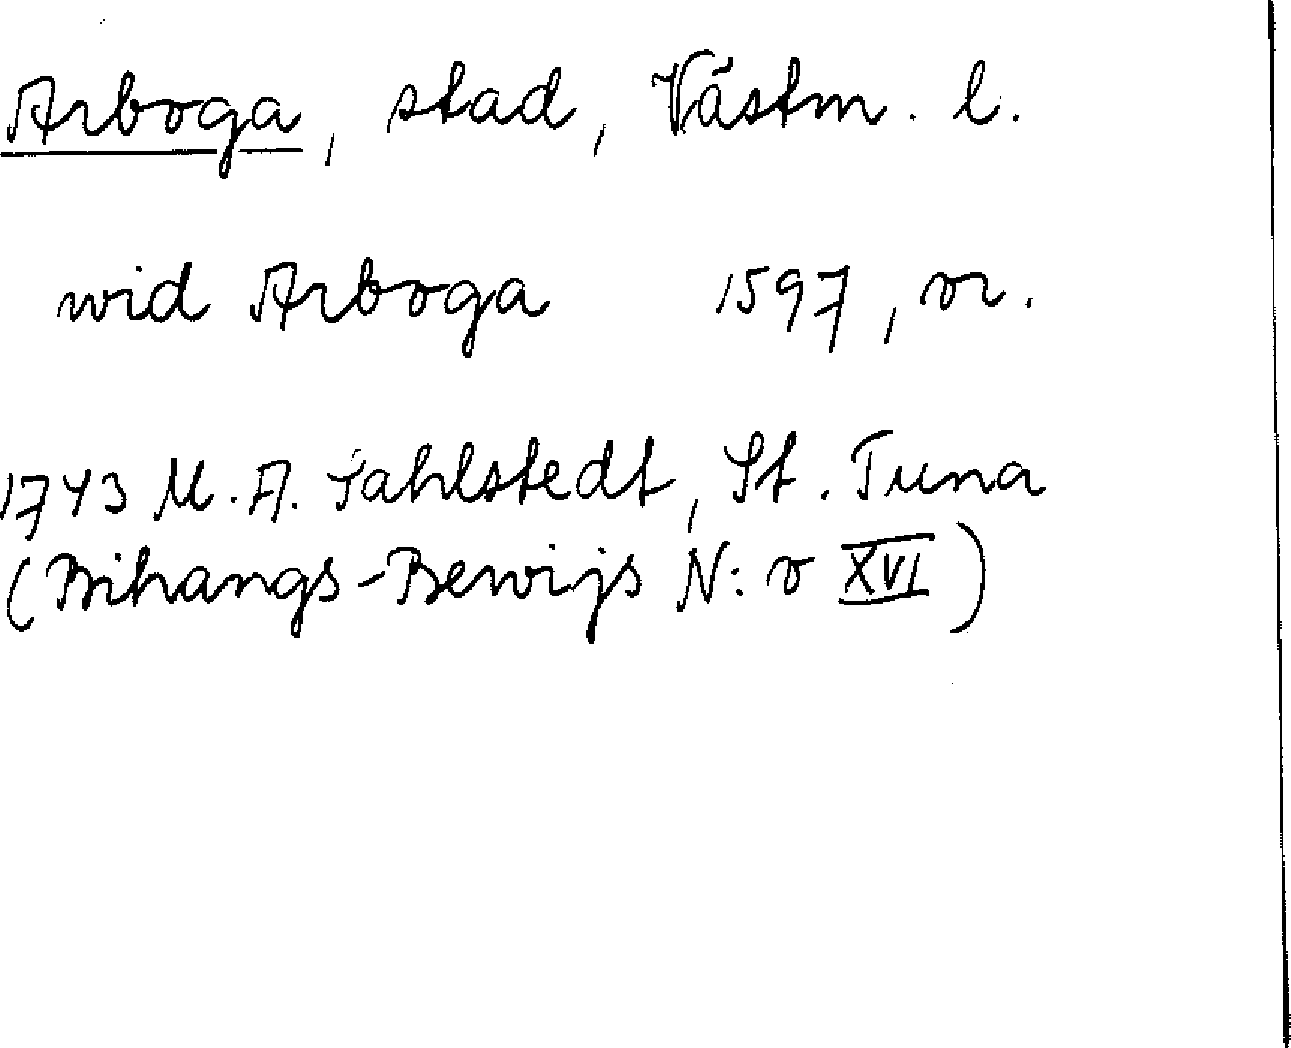 Arboga, stad, Västm. l.
wid Arboga 1597, or.
1743 M. A. Sahlstedt, St. Tuna
(Bihangs-Bewijs N:o XVI)